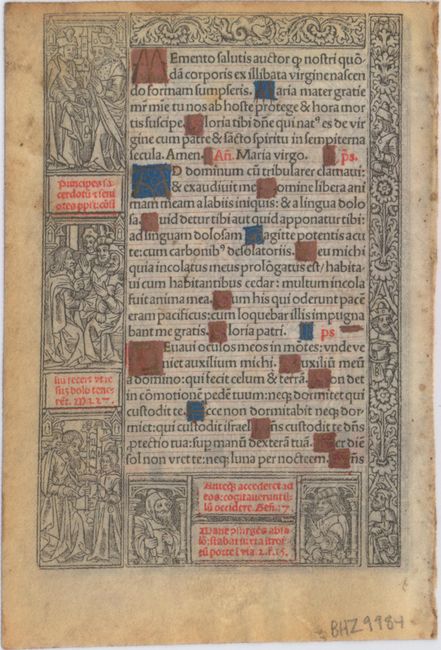 Memento salutis auctor qꝫ nostri quō
dā corporis ex illibata virgine nascen
do formam sumpseris. Maria mater gratie
mr̄ mīe tu nos ab hoste protege & hora mor
tis suscipe. Gloria tibi dn̄e qui natꝰ es de vir
gine cum patre & sācto spiritu in sempiterna
secula. Amen. Añ. Maria virgo. p̄s.
AD dominum cū tribularer clamaui:
& exaudiuit me. Domine libera ani
mam meam a labiis iniquis: & a lingua dolo
sa. Quid detur tibi aut quid apponatur tibi:
ad linguam dolosam. Sagitte potentis acu
te: cum carbonibꝰ desolatoriis. Heu michi
quia incolatus meus prolōgatus est/ habita
ui cum habitantibus cedar: multum incola
fuit anima mea. Cum his qui oderunt pacē
eram pacificus: cum loquebar illis impugna
bant me gratis. Gloria patri. p̄s
LEuaui oculos meos in mōtes: vnde ve
niet auxilium michi. Auxiliū meū
a domino: qui fecit celum & terrā. Non det
in cōmotionē pedē tuum: neqꝫ dormitet qui
custodit te. Ecce non dormitabit neqꝫ dor-
miet: qui custodit israel. Dn̄s custodit te dn̄s
ꝓtectio tua: sup manū dexterā tuā. Per diē
sol non vret te: neqꝫ luna per noctem. Dn̄s
Principes sa
cerdotū ⁊ seni
ores
Ma. 27.
Anteqꝫ accederet ad
eos: cogitauerunt il
lū occidere. Gen̄. 37.
Mane ꝯsurgēs absa
lō: stabat iuxta itroi
tū porte ī via. 2. r. 15.
BHZ9984